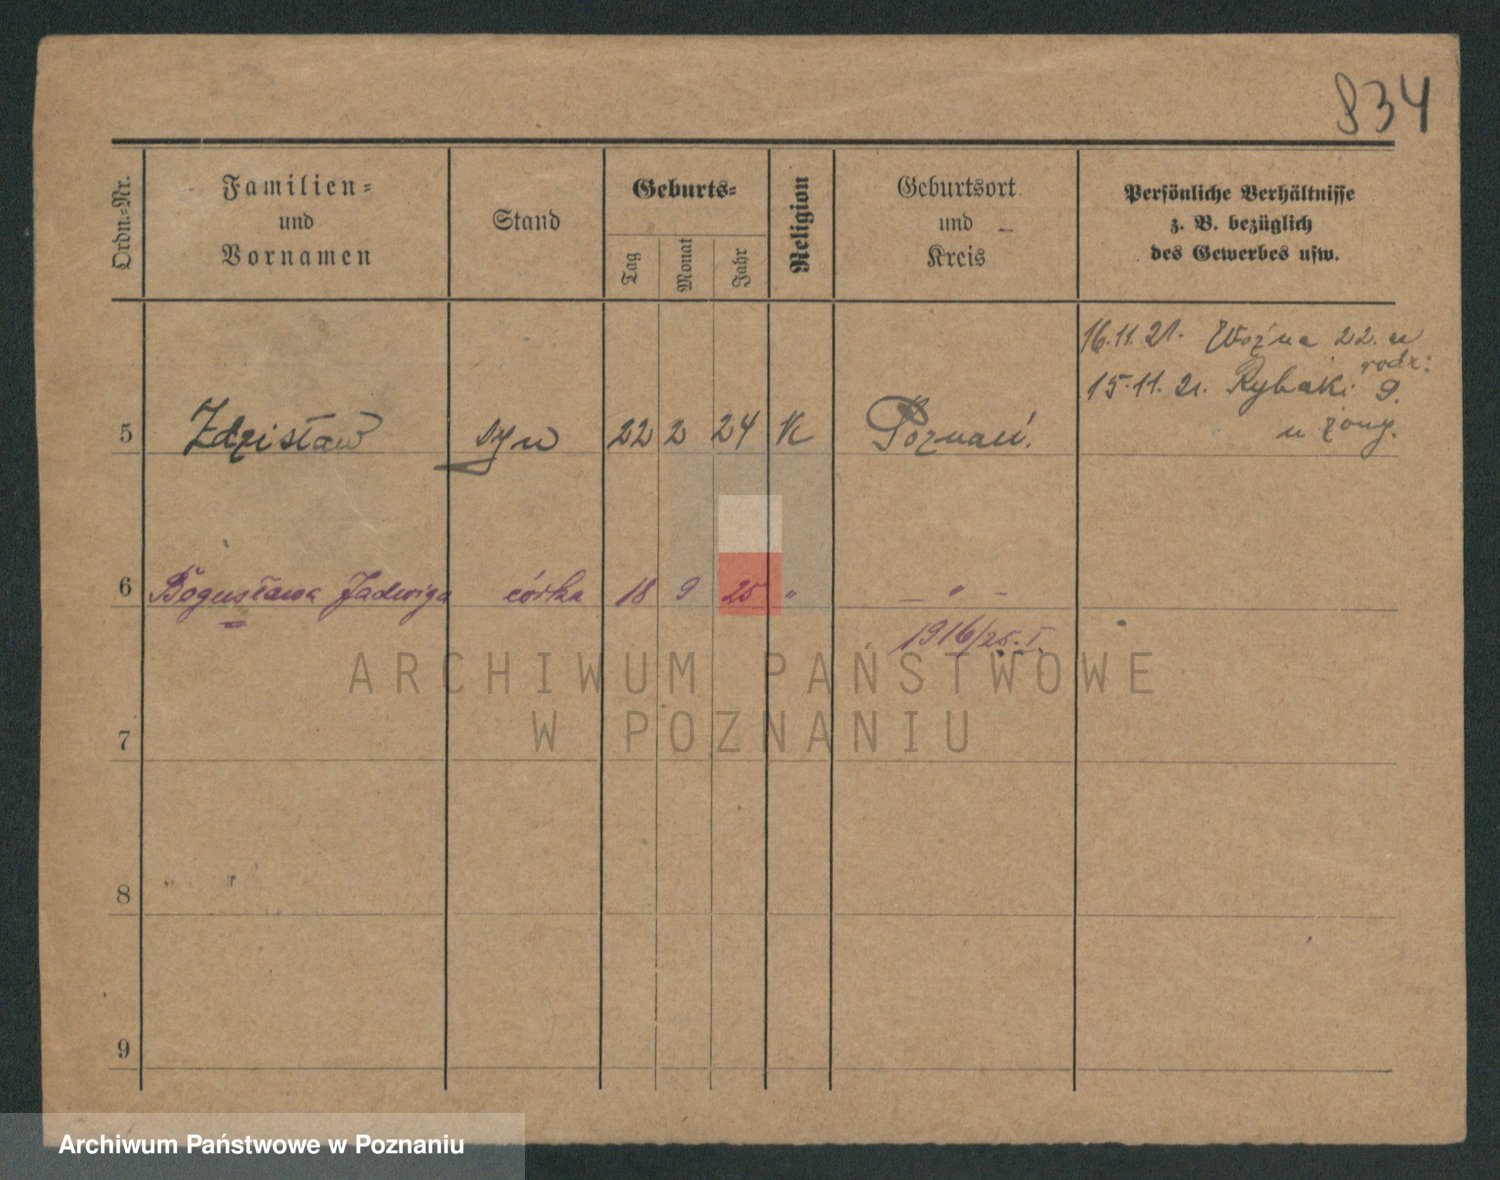 834
Ordn.-Nr.
Familien-
und
Vornamen
Stand
Geburts-
Tag
Monat
Jahr
Religion
Geburtsort
und
Kreis
Persönliche Verhältnisse
z. B. bezüglich
des Gewerbes usw.
16.11.21. Woźna 22. u
rodz:
15.11.21. Rybaki 9.
u żony.
5 Zdzisław syn 22 2 24 K Poznań.
6 Bogusława Jadwiga córka 18 9 25 " — " —
1916/25. I.
7
8
9
ARCHIWUM PAŃSTWOWE
W POZNANIU
Archiwum Państwowe w Poznaniu